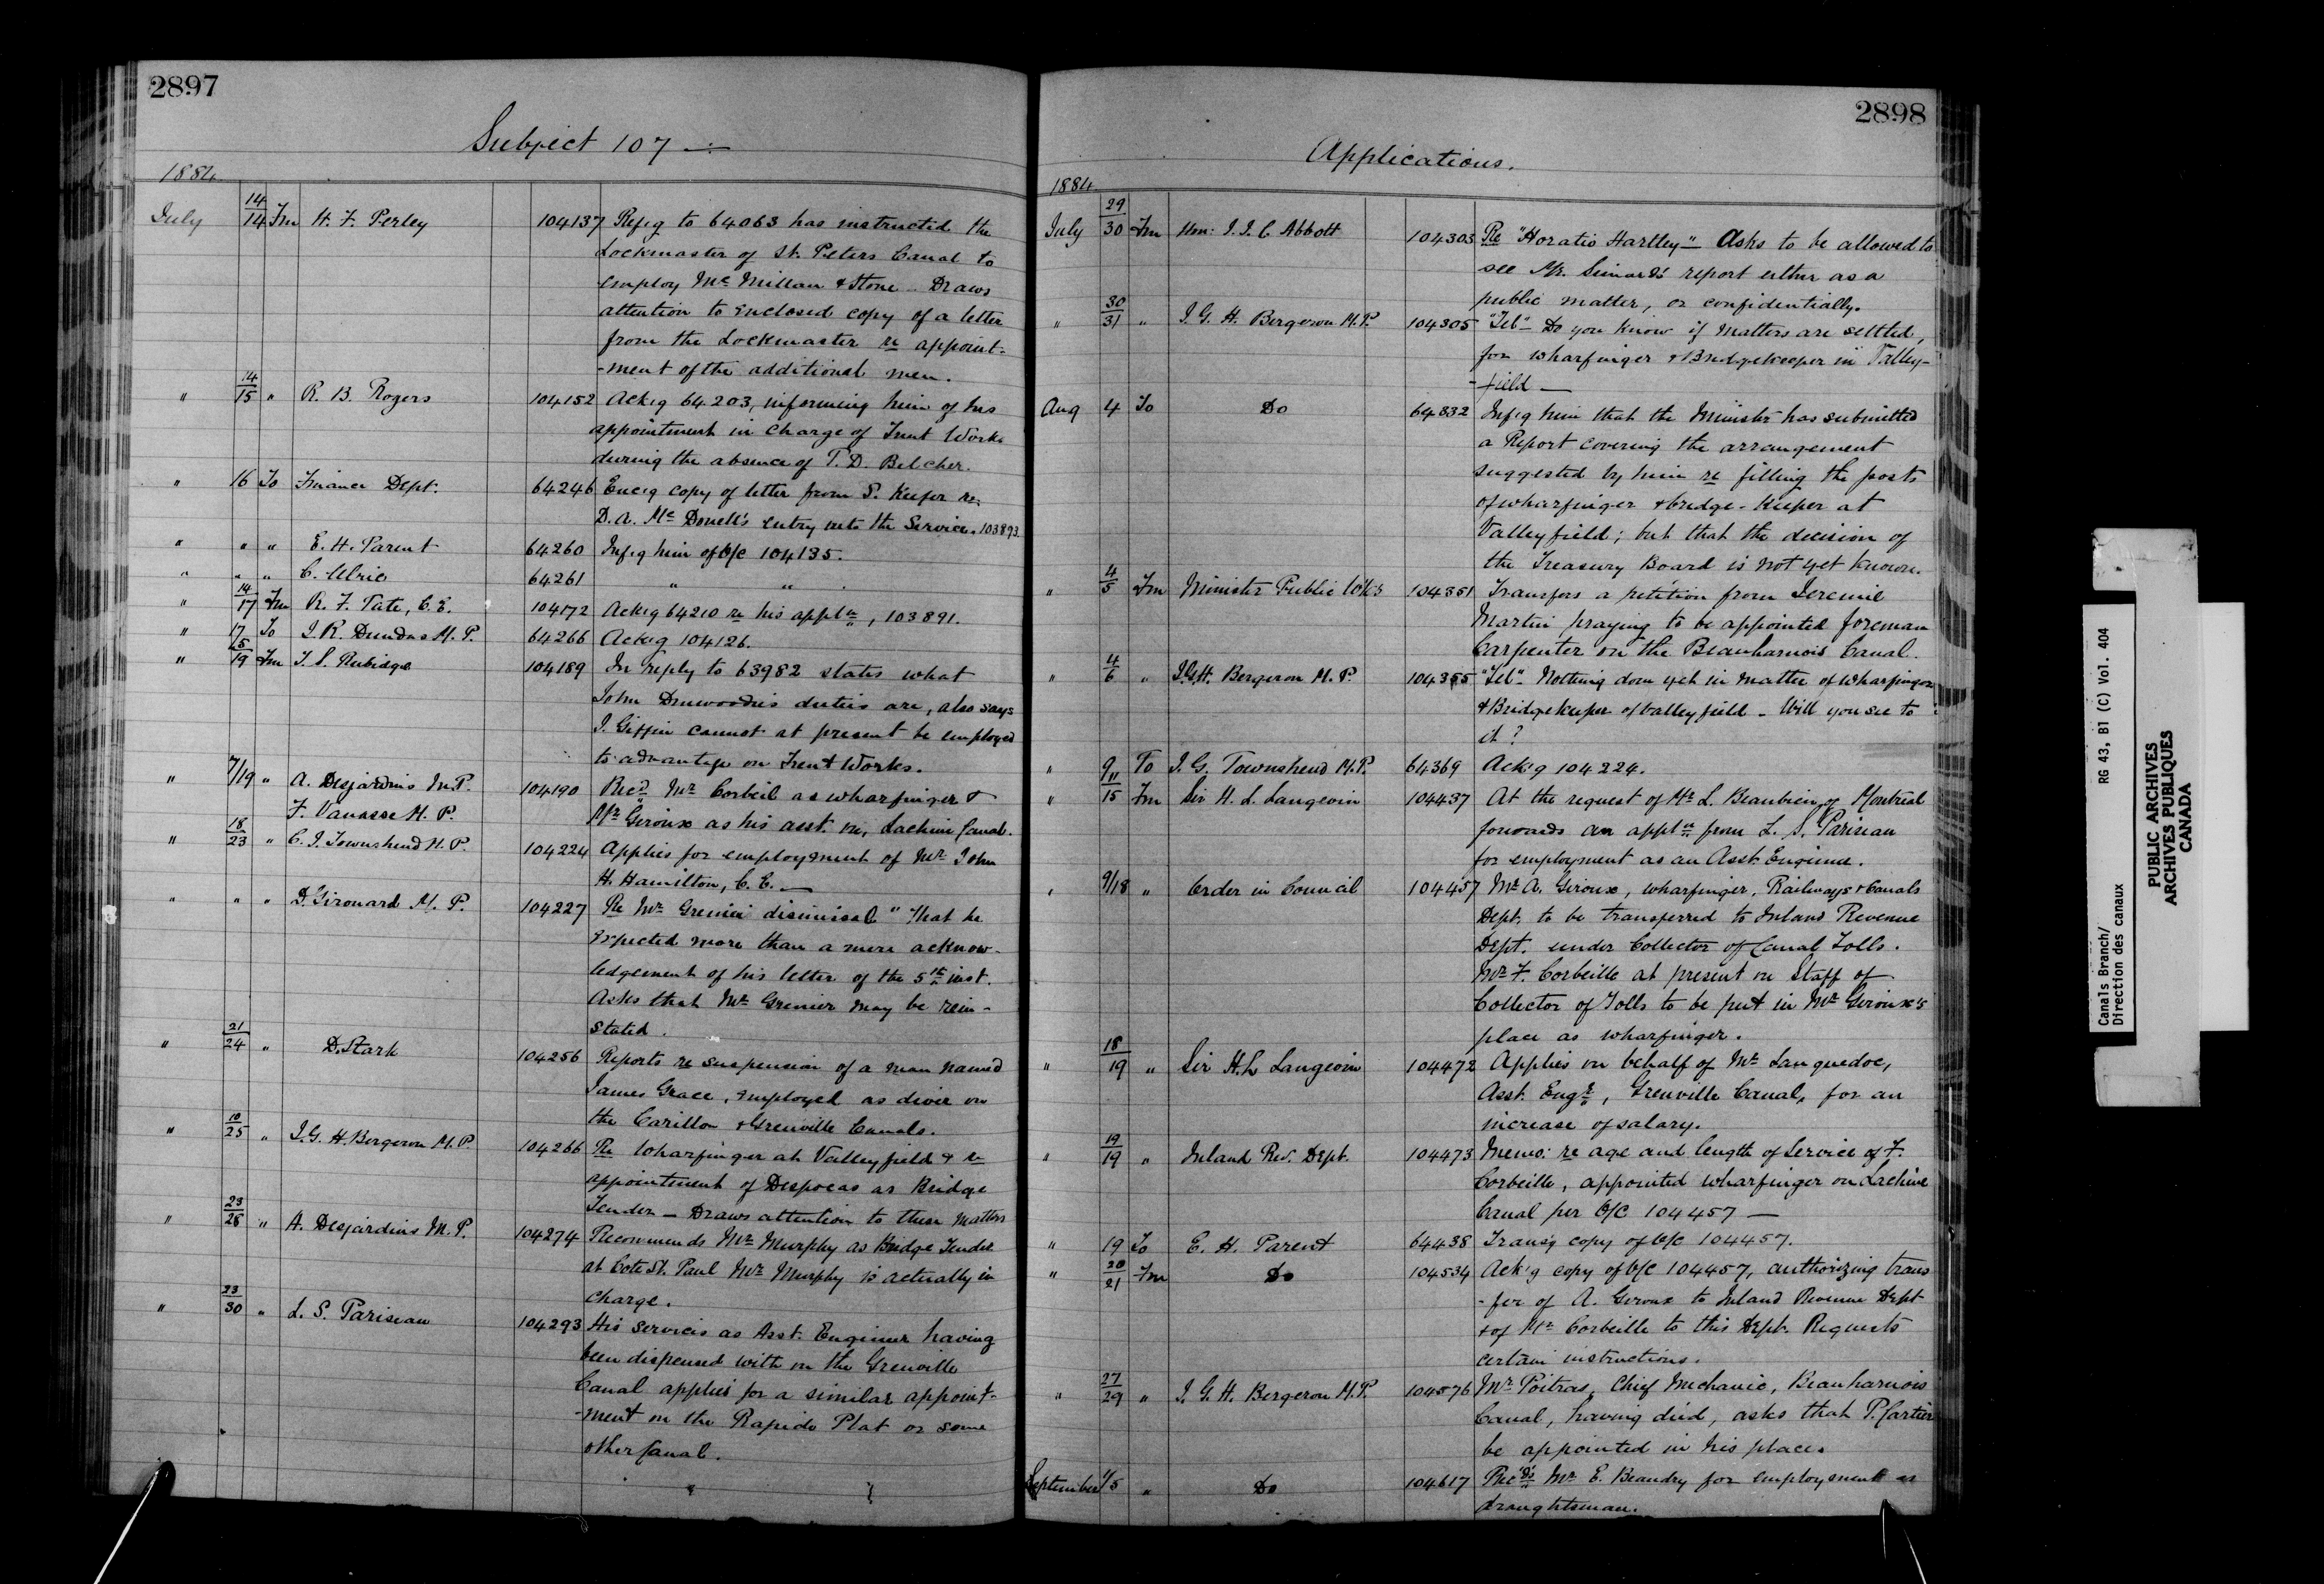 2897
Subject 107
1884
July 14/14 Fm H. F. Perley 104137 Refg to 64063 has instructed the
Lockmaster of St. Peters Canal to
employ McMillan & Stone - Draws
attention to enclosed copy of a letter
from the Lockmaster re appoint-
-ment of the additional men.
" 14/15 " R. B. Rogers 104152 Ackg 64203, informing him of his
appointment in charge of Trent Works
during the absence of T. D. Belcher.
" 16 To Finance Dept. 64246 Encg copy of letter from S. Keefer re
D. A. McDonell's entry into the Service. 103893
" " " E. H. Parent 64260 Infg him of O/C 104135.
" " " C. Ulric 64261 " "
" 14/17 Fm R. F. Tate, C.E. 104172 Ackg 64210 re his appln, 103891.
" 17 To J. R. Dundas M.P. 64266 Ackg 104126.
" 5/19 Fm T. S. Rubidge 104189 In reply to 63982 states what
John Dinwoodie's duties are, also says
J. Giffin cannot at present be employed
to advantage on Trent Works.
" 7/19 " A. Desjardins M.P. 104190 Recd Mr Corbeil as wharfinger &
F. Vanasse M.P. Mr Giroux as his asst. on Lachine Canal.
" 18/23 " C. J. Townshend M.P. 104224 Applies for employment of Mr John
H. Hamilton, C.E. —
" " " D. Girouard M.P. 104227 Re Mr Grenier dismissal "That he
expected more than a mere acknow-
ledgement of his letter of the 5th inst.
Asks that Mr Grenier may be rein-
stated.
" 21/24 " D. Stark 104256 Reports re suspension of a man named
James Grace, employed as diver on
the Carillon & Grenville Canals.
" 10/25 " J. G. H. Bergeron M.P. 104266 Re Wharfinger at Valleyfield & re
appointment of Despocas as Bridge
Tender - Draws attention to these matters
" 23/28 " A. Desjardins M.P. 104274 Recommends Mr Murphy as Bridge Tender
at Cote St. Paul Mr Murphy is actually in
charge.
" 23/30 " L. S. Pariseau 104293 His services as Asst. Engineer having
been dispensed with on the Grenville
Canal applies for a similar appoint-
-ment on the Rapide Plat or some
other Canal.
2898
Applications.
1884
July 29/30 Fm Hon: J. J. C. Abbott 104303 Re "Horatio Hartley" - Asks to be allowed to
see Mr. Simard's report either as a
public matter, or confidentially.
" 30/31 " J. G. H. Bergeron M.P. 104305 "Tel" - Do you know if matters are settled,
for wharfinger & Bridgekeeper in Valley-
-field —
Aug 4 To Do 64332 Infg him that the Minister has submitted
a Report covering the arrangement
suggested by him re filling the posts
of wharfinger & bridge-keeper at
Valleyfield; but that the decision of
the Treasury Board is not yet known.
" 4/5 Fm Minister Public Wks 104351 Transfers a petition from Jeremie
Martin praying to be appointed foreman
Carpenter on the Beauharnois Canal.
" 4/6 " J.G.H. Bergeron M.P. 104355 "Tel" - Nothing done yet in matter of wharfinger
& Bridgekeeper of Valleyfield - Will you see to
it?
" 9 To J. G. Townshend M.P. 64369 Ack'g 104224.
" 11/15 Fm Sir H. L. Langevin 104437 At the request of Mr L. Beaubien of Montreal
forwards an appln from L. S. Pariseau
for employment as an Asst. Engineer.
" 9/18 " Order in Council 104457 Mr A. Giroux, wharfinger, Railways & Canals
Dept. to be transferred to Inland Revenue
Dept. under Collector of Canal Tolls.
Mr F. Corbeille at present on Staff of
Collector of Tolls to be put in Mr Giroux's
place as wharfinger.
" 18/19 " Sir H.L Langevin 104472 Applies on behalf of Mr Languedoc,
Asst. Engr, Grenville Canal, for an
increase of salary.
" 19/19 " Inland Rev. Dept. 104473 Memo: re age and length of service of F.
Corbeille, appointed wharfinger on Lachine
Canal per O/C 104457 —
" 19 To E. H. Parent 64438 Trans'g copy of O/C 104457.
" 20/21 Fm Do 104534 Ack'g copy of O/C 104457, authorizing trans
-fer of A. Giroux to Inland Revenue Dept
& of Mr Corbeille to this Dept. Requests
certain instructions.
" 27/29 " J. G. H. Bergeron M.P. 104576 Mr Poitras, Chief Mechanic, Beauharnois
Canal, having died, asks that P. Cartier
be appointed in his place.
September 1/5 " Do 104617 Recds Mr E. Beaudry for employment as
draughtsman.
Canals Branch/
Direction des canaux
RG 43, B1 (C) Vol. 404
PUBLIC ARCHIVES
ARCHIVES PUBLIQUES
CANADA